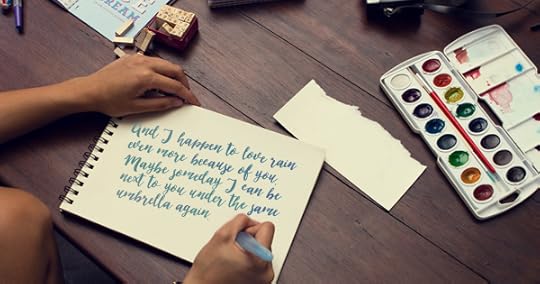 DREAM
And I happen to love rain
even more because of you
Maybe someday I can be
next to you under the same
umbrella again